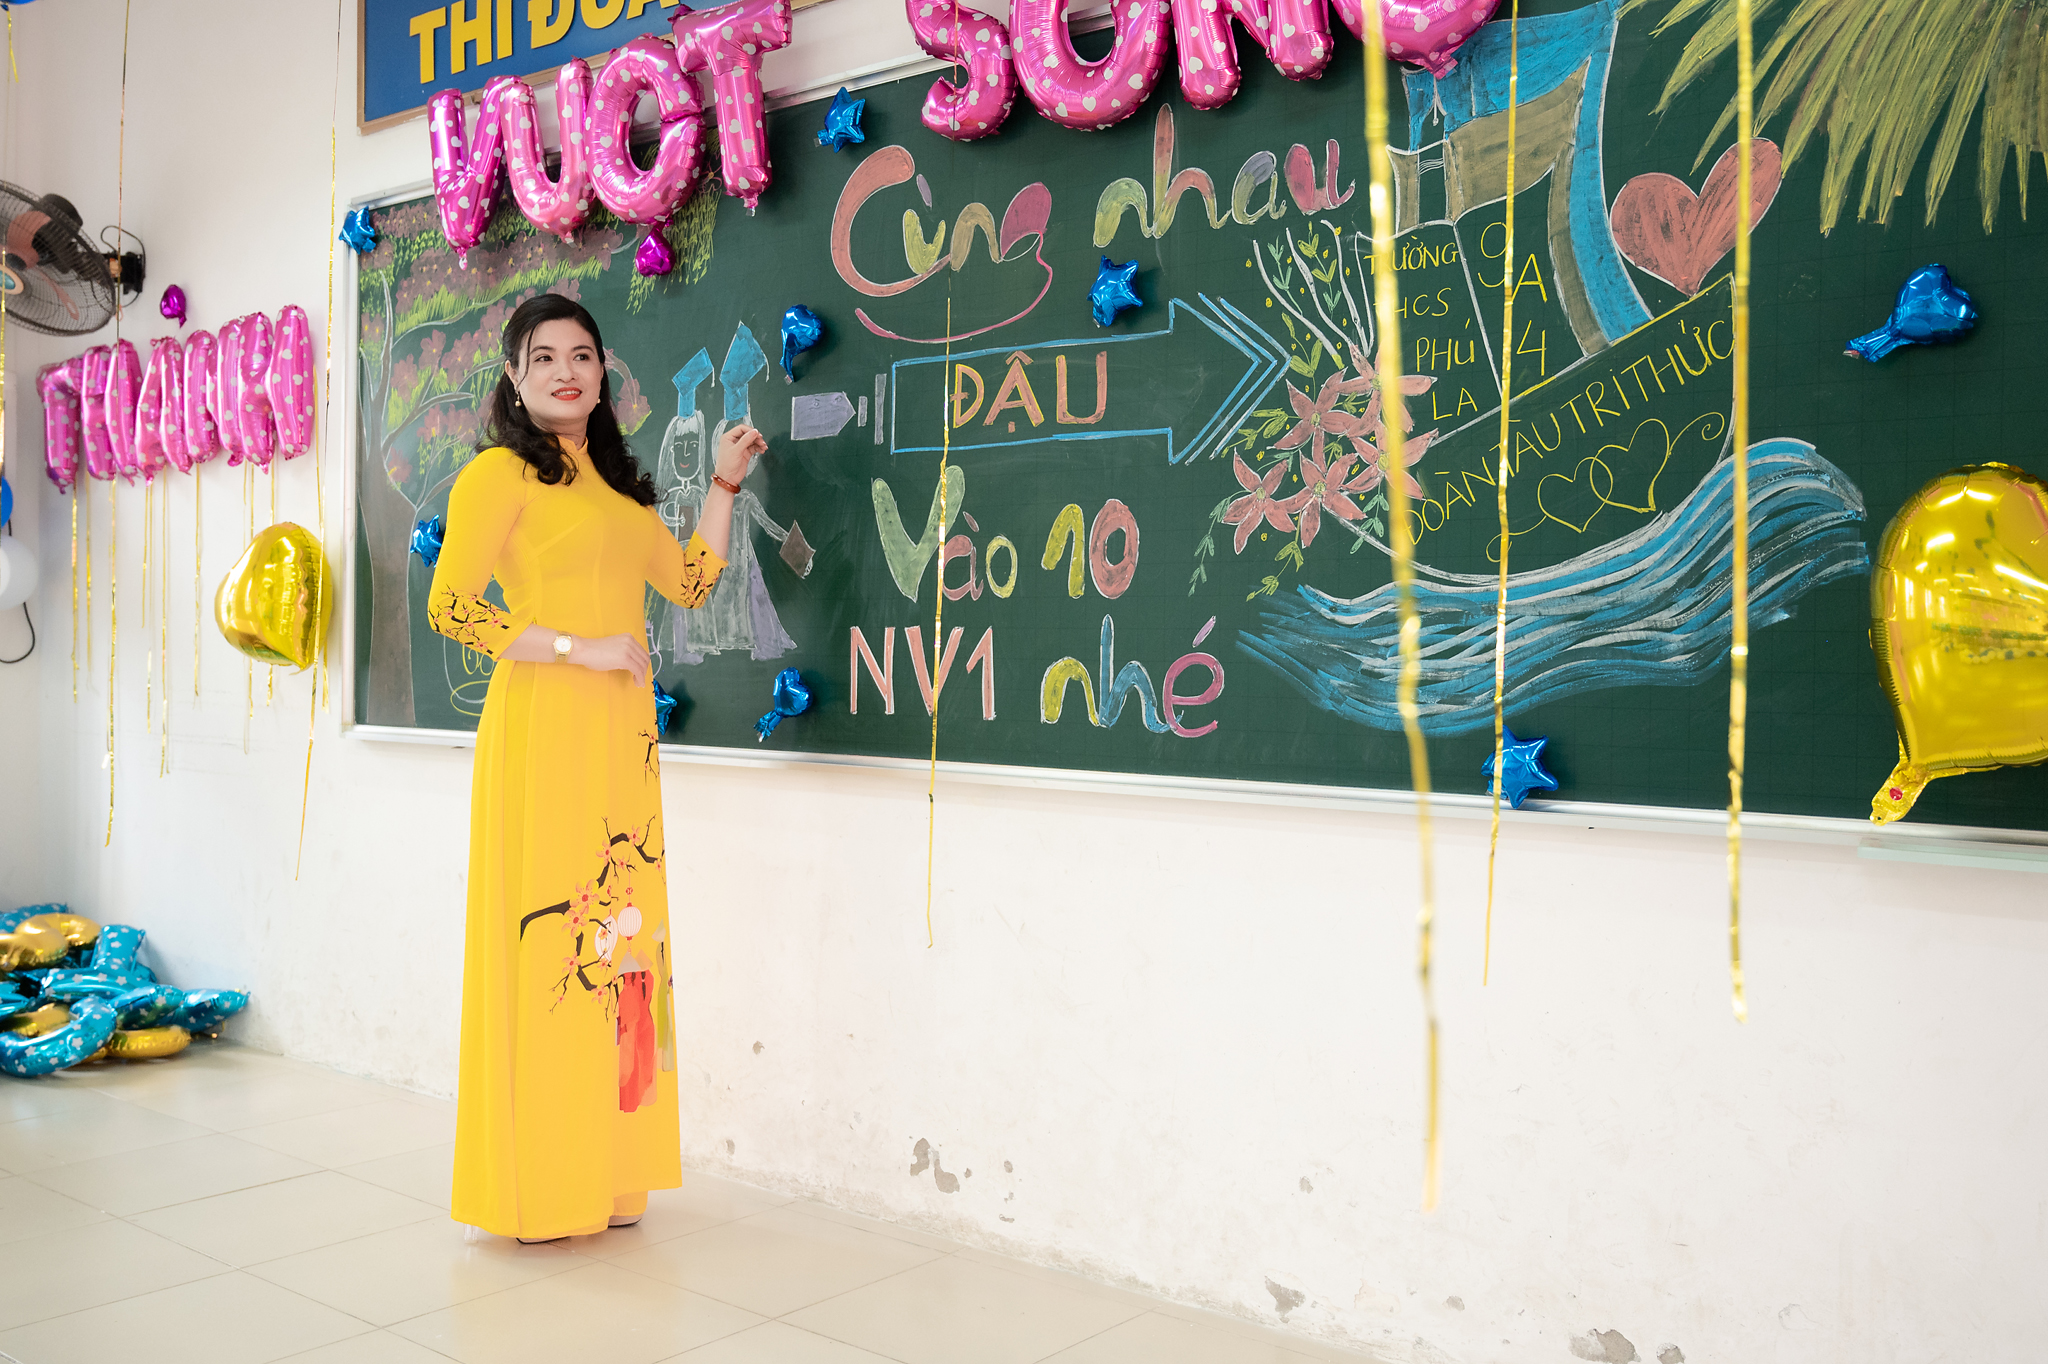 THI ĐUA
VƯỢT SÓNG
THÀNH
Cùng nhau
ĐẬU
Vào 10
NV1 nhé
TRƯỜNG
THCS
PHÚ
LA
9
A
4
ĐOÀN TÀU TRI THỨC